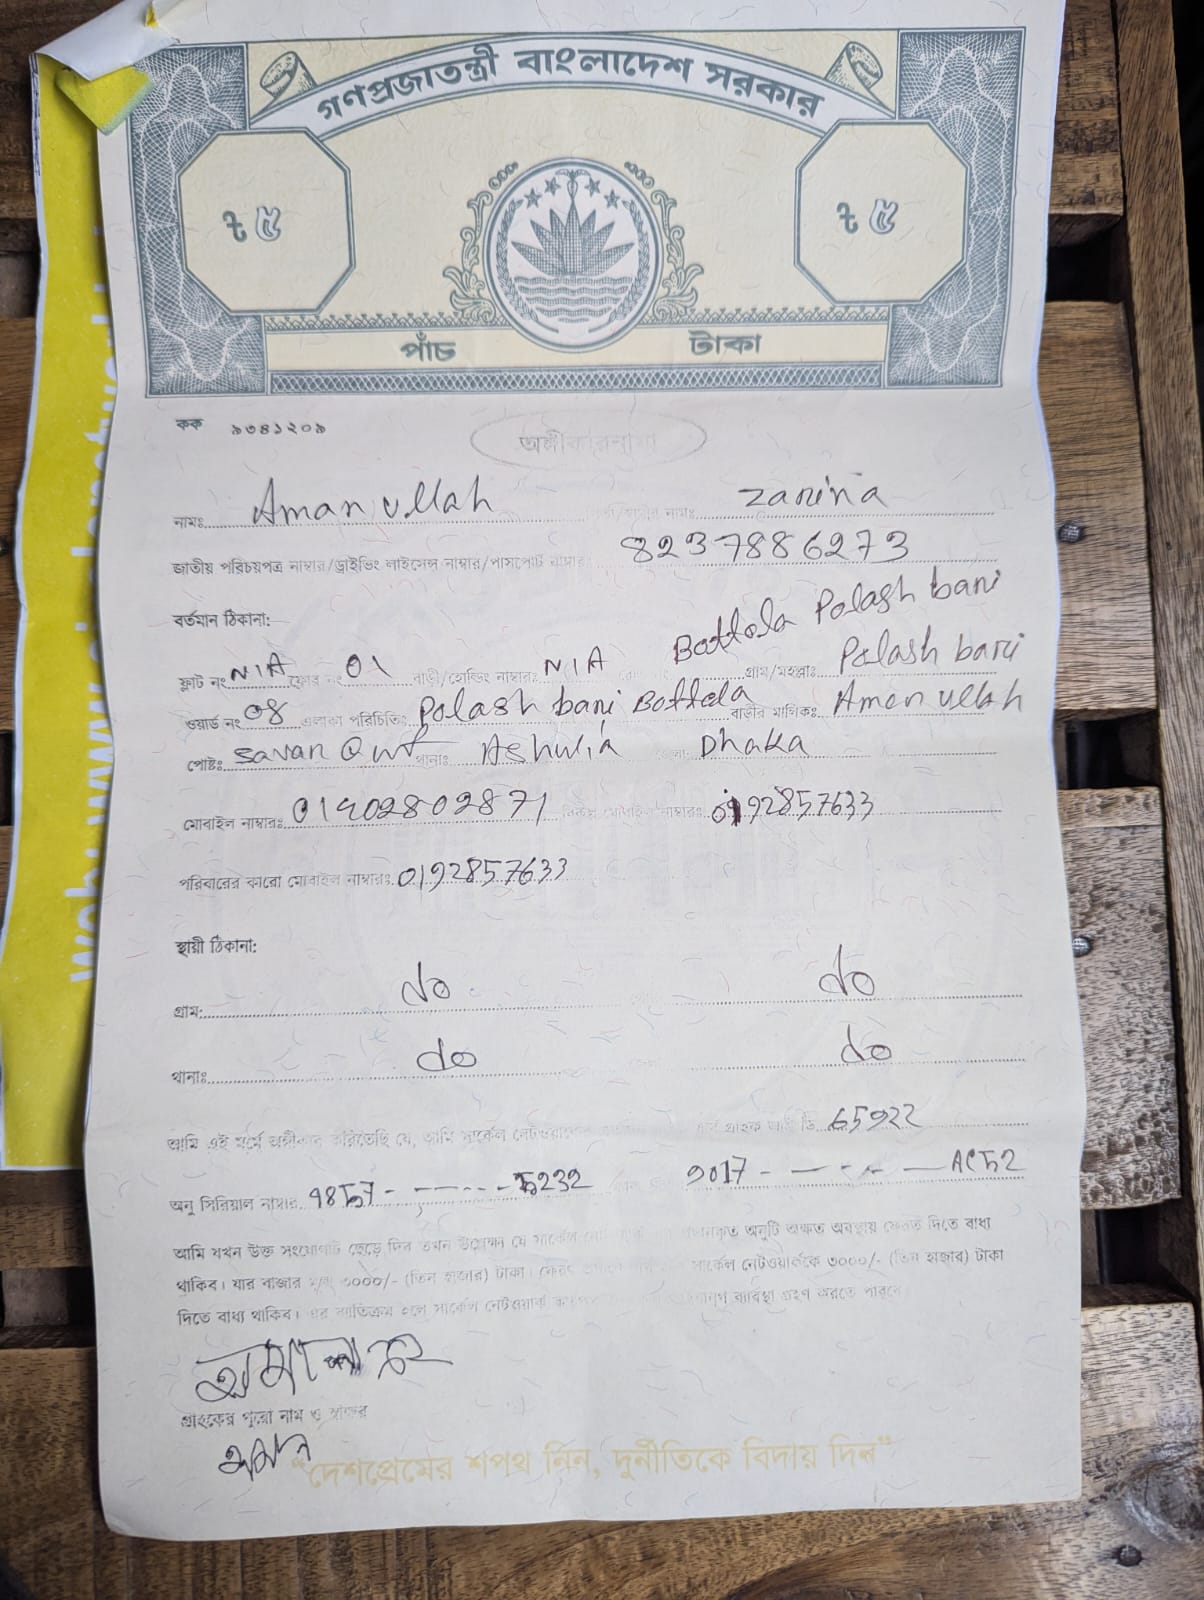 গণপ্রজাতন্ত্রী বাংলাদেশ সরকার
৳ ৫ ৳ ৫
পাঁচ টাকা
কক ৯৩৪১২০৯
অঙ্গীকারনামা
নামঃ Aman ullah নামঃ zarina
জাতীয় পরিচয়পত্র নাম্বার/ড্রাইভিং লাইসেন্স নাম্বার/পাসপোর্ট নাম্বার 8237886273
বর্তমান ঠিকানা: Bottola Polash bari
ফ্লাট নং N/A ফ্লোর নং 01 বাড়ী/হোল্ডিং নাম্বারঃ N/A গ্রাম/মহল্লাঃ Polash bari
ওয়ার্ড নং 08 এলাকা পরিচিতিঃ Polash bari Bottola বাড়ীর মালিকঃ Aman ullah
পোষ্টঃ Savar থানাঃ Ashulia Dhaka
মোবাইল নাম্বারঃ 01902802871 বিকল্প মোবাইল নাম্বারঃ 0192857633
পরিবারের কারো মোবাইল নাম্বারঃ 0192857633
স্থায়ী ঠিকানা:
গ্রাম: do do
থানাঃ do do
আমি এই মর্মে অঙ্গীকার করিতেছি যে, আমি সার্কেল নেটওয়ার্কের গ্রাহক আই ডি 65922
অনু সিরিয়াল নাম্বার 5232 9017 - - - - - AC52
আমি যখন উক্ত সংযোগটি ছেড়ে দিব তখন উল্লেক্ষন যে সার্কেল অনুটি অক্ষত অবস্থায় ফেরত দিতে বাধ্য
থাকিব। যার বাজার মূল্য ৩০০০/- (তিন হাজার) টাকা। সার্কেল নেটওয়ার্ককে ৩০০০/- (তিন হাজার) টাকা
দিতে বাধ্য থাকিব। এর ব্যতিক্রম হলে সার্কেল নেটওয়ার্ক ব্যাবস্থা গ্রহণ করতে পারবে।
গ্রাহকের পুরো নাম ও স্বাক্ষর
"দেশপ্রেমের শপথ নিন, দুর্নীতিকে বিদায় দিন"